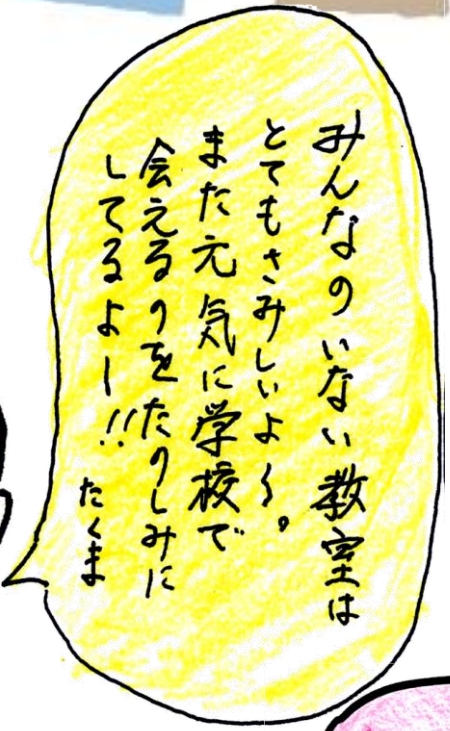 みんなのいない教室は
とてもさみしいよ〜。
また元気に学校で
会えるのをたのしみに
してるよー!!
たくま